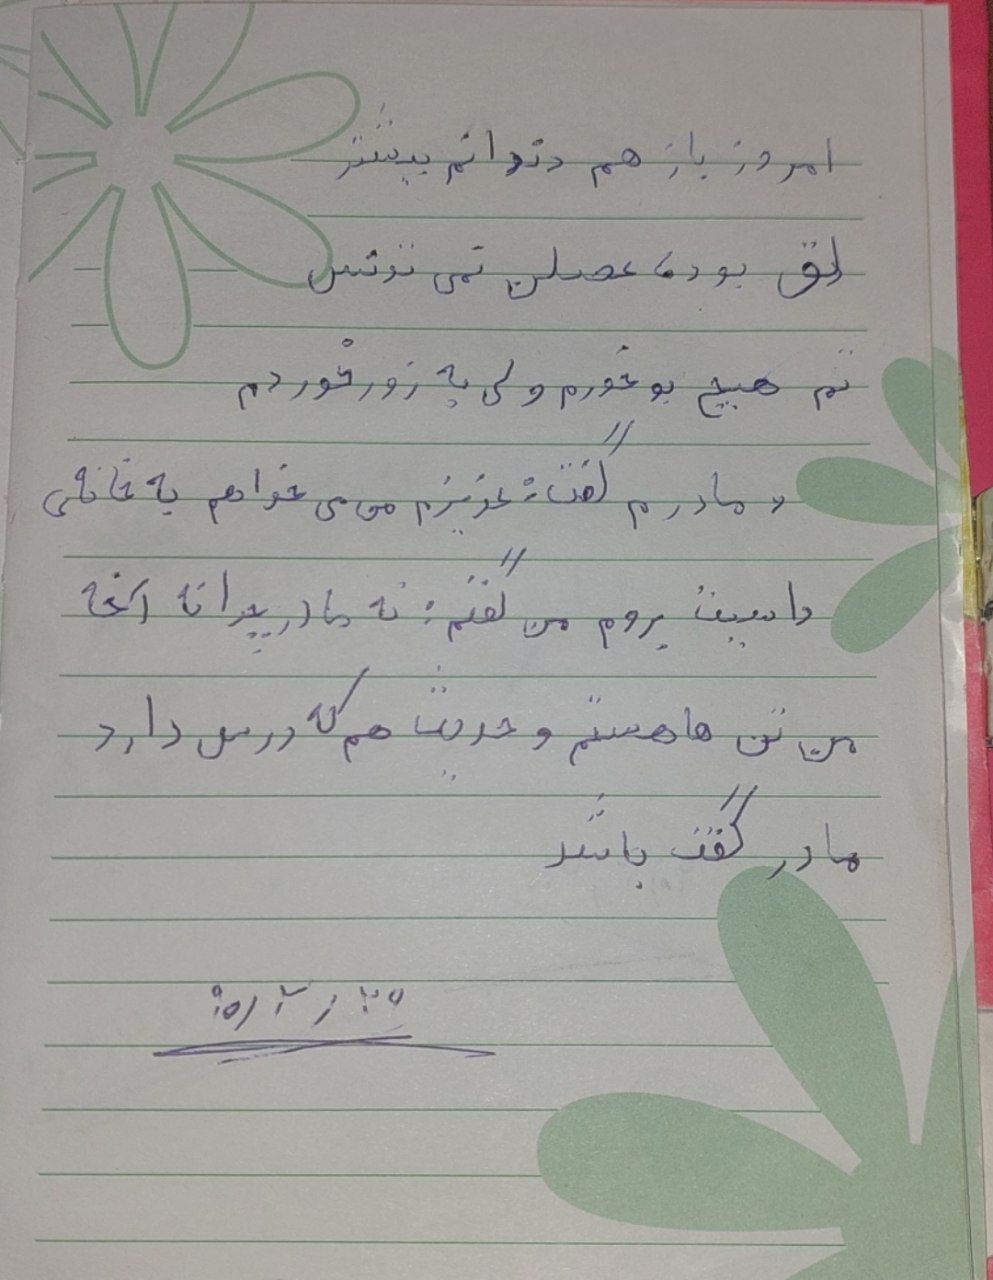 امروز باز هم دندانم بیشتر
لق بوده عصلن نمی تونس
تم هیچ بوخورم ولی به زور خوردم
و مادرم گفت: عزیزم من می خواهم به خانه‌ی
داییت بروم من گفتم: نه مادر چرا نه آخه
من تن ها هستم و حدیث هم که درس دارد
مادر گفت باشد